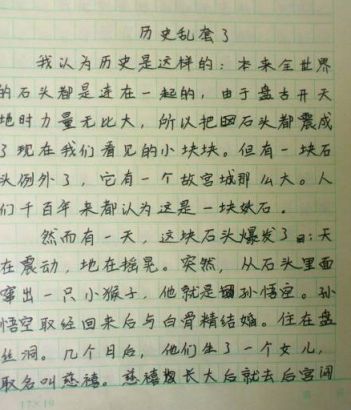 历史乱套了
我认为历史是这样的：本来全世界
的石头都是连在一起的，由于盘古开天
地时力量无比大，所以把石头都震成
了现在我们看见的小块块。但有一块石
头例外了，它有一个故宫城那么大。人
们千百年来都认为这是一块妖石．
然而有一天，这块石头爆发了：天
在震动，地在摇晃。突然，从石头里面
窜出一只小猴子，他就是孙悟空。孙
悟空取经回来后与白骨精结婚。住在盘
丝洞。几个月后，他们生了一个女儿，
取名叫慈禧。慈禧长大后就去后宫闹
17×19